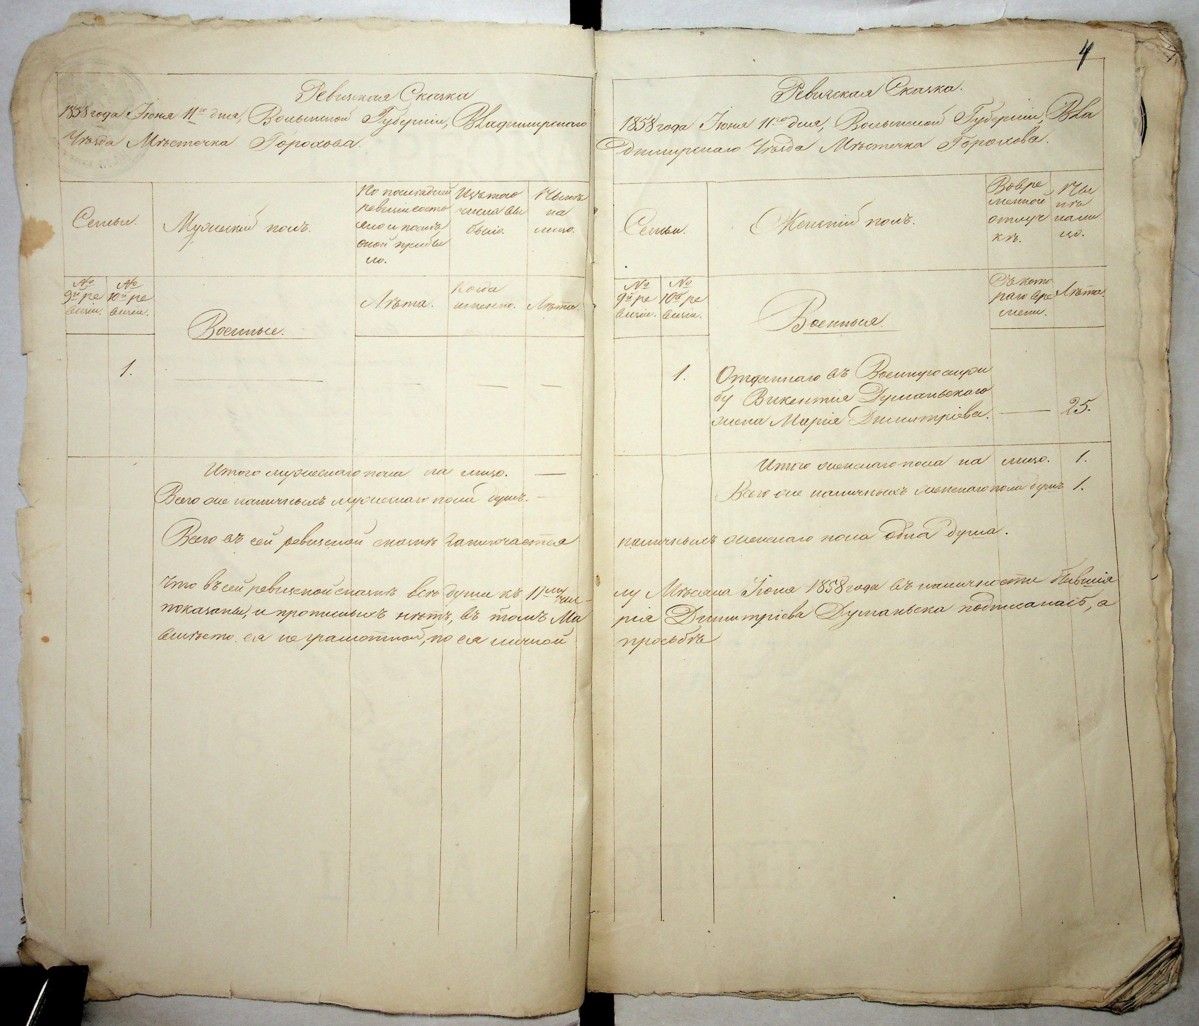 4
Ревизская Сказка
1858 года Июня 11го дня, Волынской Губернии, Владимирского
Уѣзда Мѣстечка Горохова.
Семьи.
Мужескій полъ.
По послѣдней
ревизіи состо
яло и послѣ
оной прибы
ло.
Изъ того
числа вы
было.
Нынѣ
на
лицо.
№
9й ре
визіи.
№
10й ре
визіи.
Военные.
Лѣта.
Когда
именно.
Лѣта.
1.
Итого мужескаго пола на лицо. —
Всего же наличныхъ мужескаго пола душъ. —
Всего въ сей ревизской сказкѣ заключается
Что въ сей ревизской сказкѣ всѣ души къ 11му чис
показаны, и прописныхъ нѣтъ, въ томъ Ма
вмѣсто ея не грамотной, по ея личной
Ревизская Сказка.
1858 года Июня 11го дня, Волынской Губерніи, Вла
димирскаго Уѣзда Мѣстечка Горохова.
Семьи.
Женскій полъ.
Во вре
менной
отлуч
кѣ.
Ны
нѣ
на ли
цо.
№
9й ре
визіи.
№
10й ре
визіи.
Военныя.
Съ кото
раго вре
мени.
Лѣта.
1.
Отданнаго въ Военную служ
бу Викентія Думаньского
жена Марія Димитріева. — 25.
Итого женскаго пола на лицо. 1.
Всего же наличныхъ женскаго пола душъ 1.
наличныхъ женскаго пола одна душа.
лу Мѣсяца Іюня 1858 года въ наличности бывшія
рія Димитріева Думаньска подписалась, а
просьбѣ